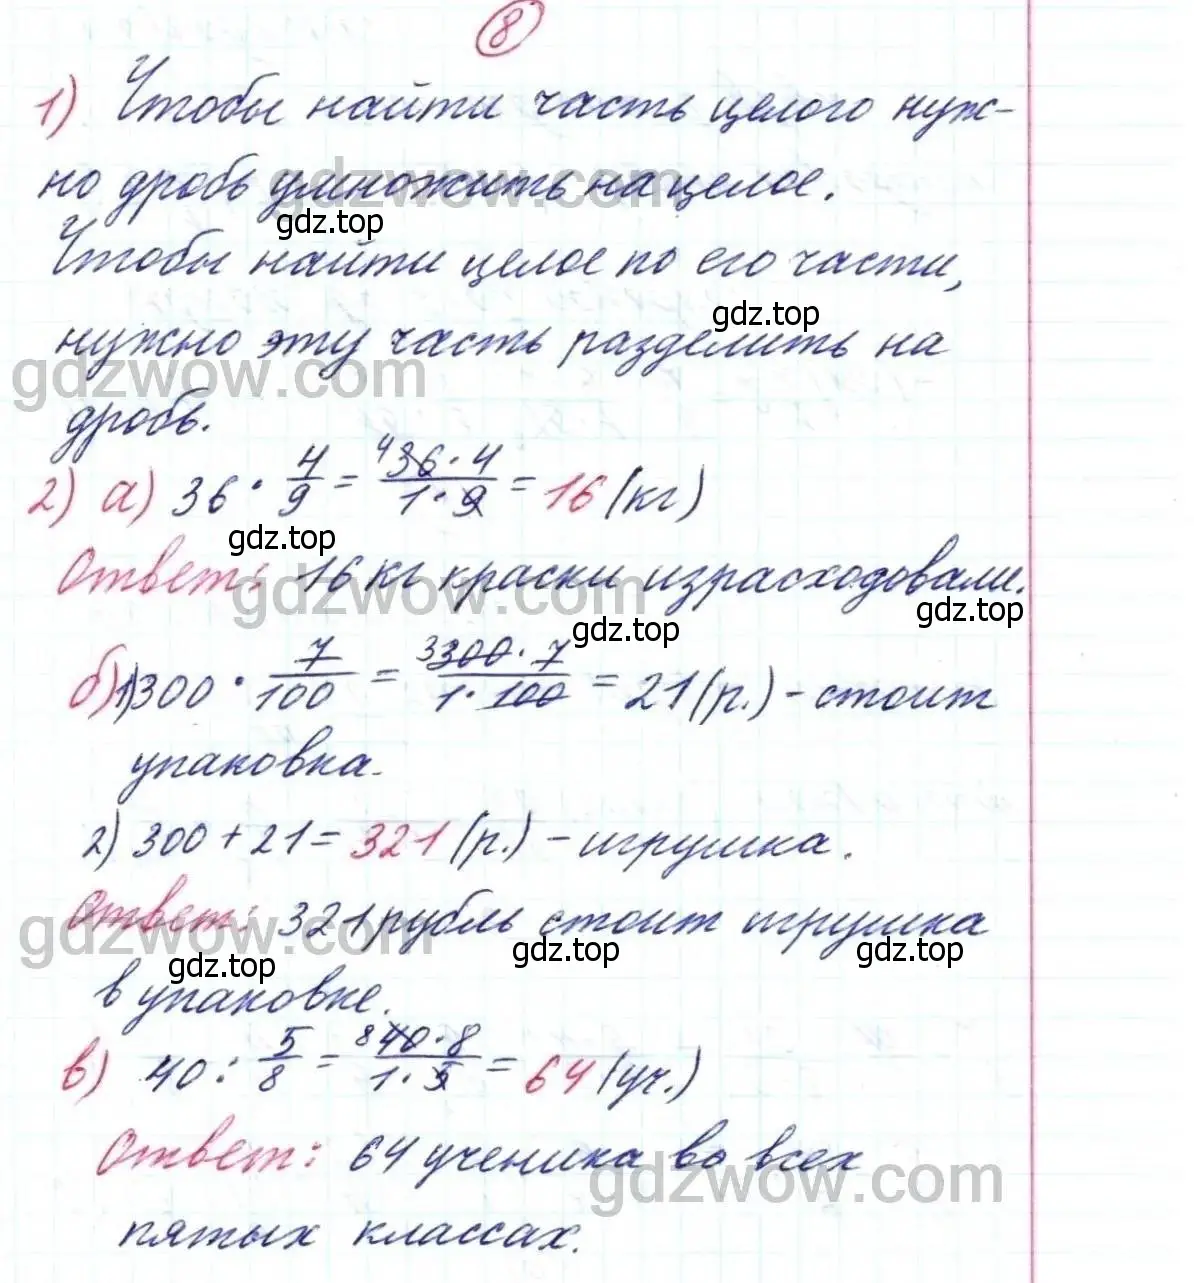 8
1) Чтобы найти часть целого нуж-
но дробь умножить на целое.
gdzwow.com
gdz.top
Чтобы найти целое по его части,
gdz.top
нужно эту часть разделить на
gdzwow.com
дробь.
2) а) 36 · 4/9 = 36 · 4 / 1 · 9 = 16 (кг)
gdz.top
Ответ: 16 кг краски израсходовали.
gdzwow.com
gdz.top
gdz.top
б) 1) 300 · 7/100 = 300 · 7 / 1 · 100 = 21 (р.) - стоит
упаковка.
2) 300 + 21 = 321 (р.) - игрушка.
Ответ: 321 рубль стоит игрушка
gdzwow.com
gdz.top
gdz.top
gdz.top
в упаковке.
в) 40 : 5/8 = 40 · 8 / 1 · 5 = 64 (уч.)
Ответ: 64 ученика во всех
gdzwow.com
пятых классах.